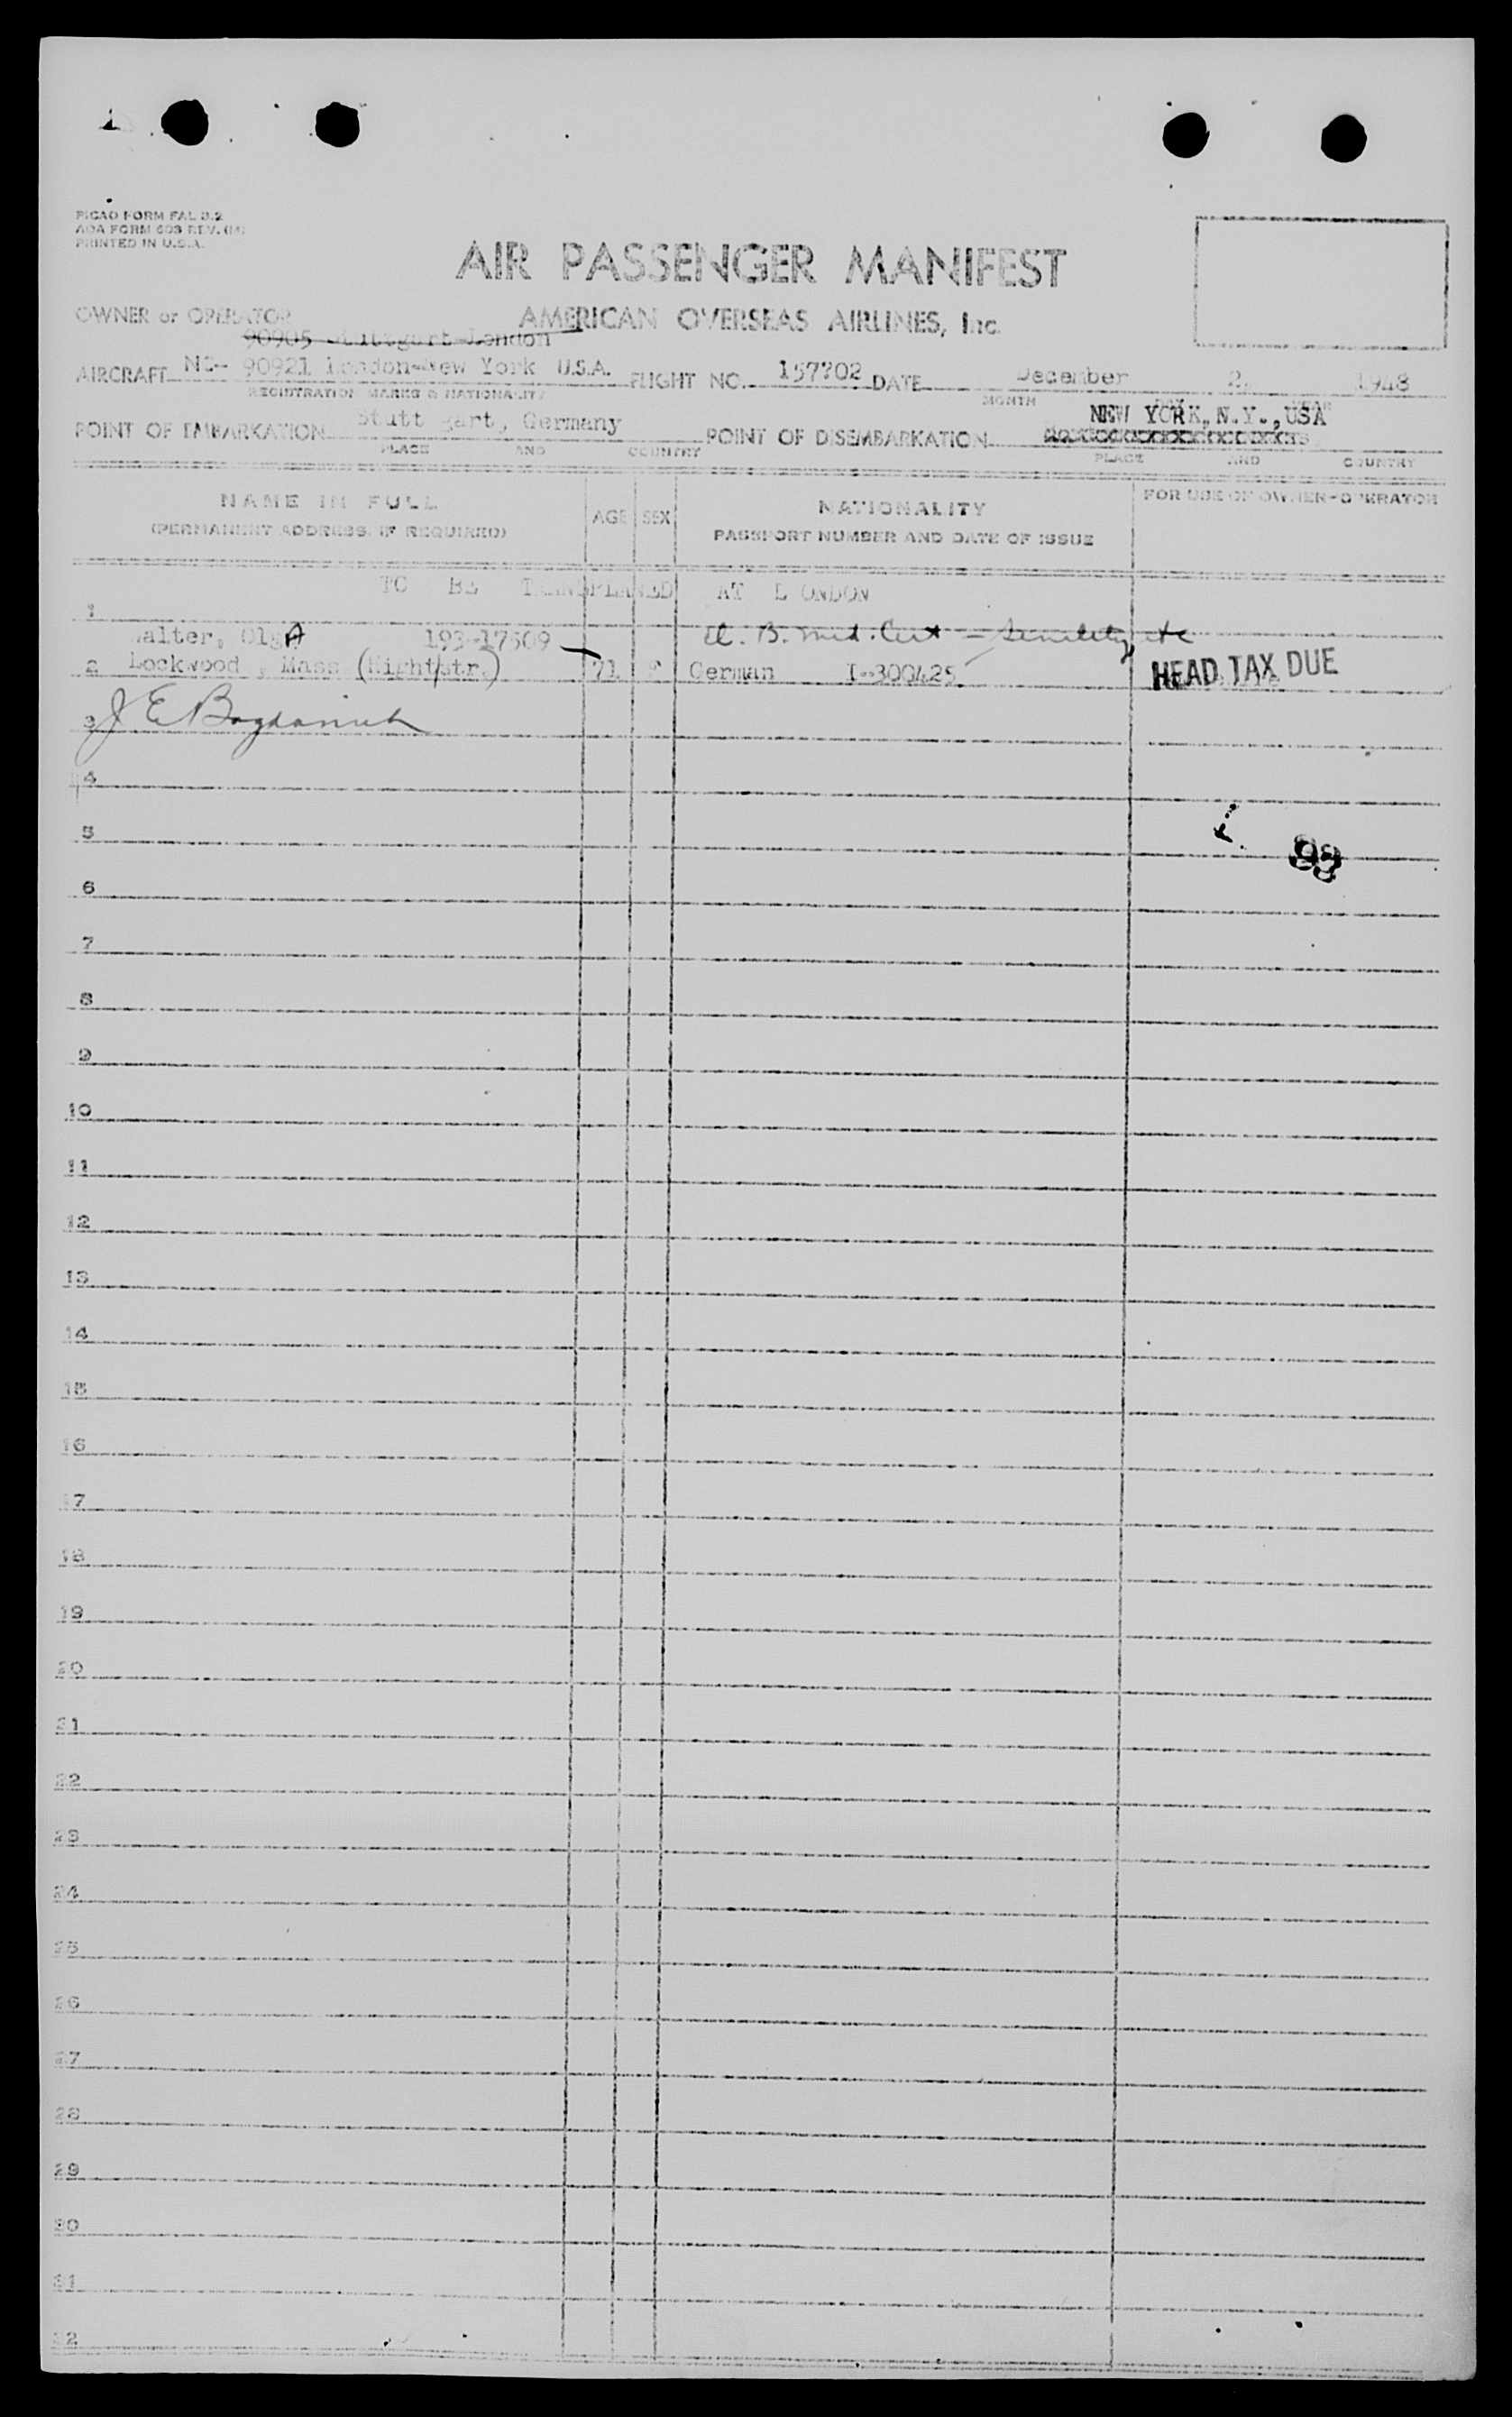 PICAO FORM FAL 3.2
AOA FORM 603 REV. (M)
PRINTED IN U.S.A.
AIR PASSENGER MANIFEST
OWNER or OPERATOR AMERICAN OVERSEAS AIRLINES, Inc.
90905 Stuttgart-London
AIRCRAFT NC-- 90921 London-New York U.S.A. FLIGHT NO. 157702 DATE December 2, 1948
REGISTRATION MARKS & NATIONALITY MONTH DAY YEAR
NEW YORK, N.Y., USA
POINT OF EMBARKATION Stutt gart, Germany POINT OF DISEMBARKATION
PLACE AND COUNTRY PLACE AND COUNTRY
NAME IN FULL
(PERMANENT ADDRESS, IF REQUIRED)
AGE SEX
NATIONALITY
PASSPORT NUMBER AND DATE OF ISSUE
FOR USE OF OWNER-OPERATOR
TO BE TRANSPLANED AT L ONDON
1
Walter, OlgA 193-17509 Med. Cert - Senility, etc
2 Lockwood, Mass (Hight/str.) 71 German I-300425 HEAD TAX DUE
3 J E Bogdanich
4
5
98
6
7
8
9
10
11
12
13
14
15
16
17
18
19
20
21
22
23
24
25
26
27
28
29
30
31
32